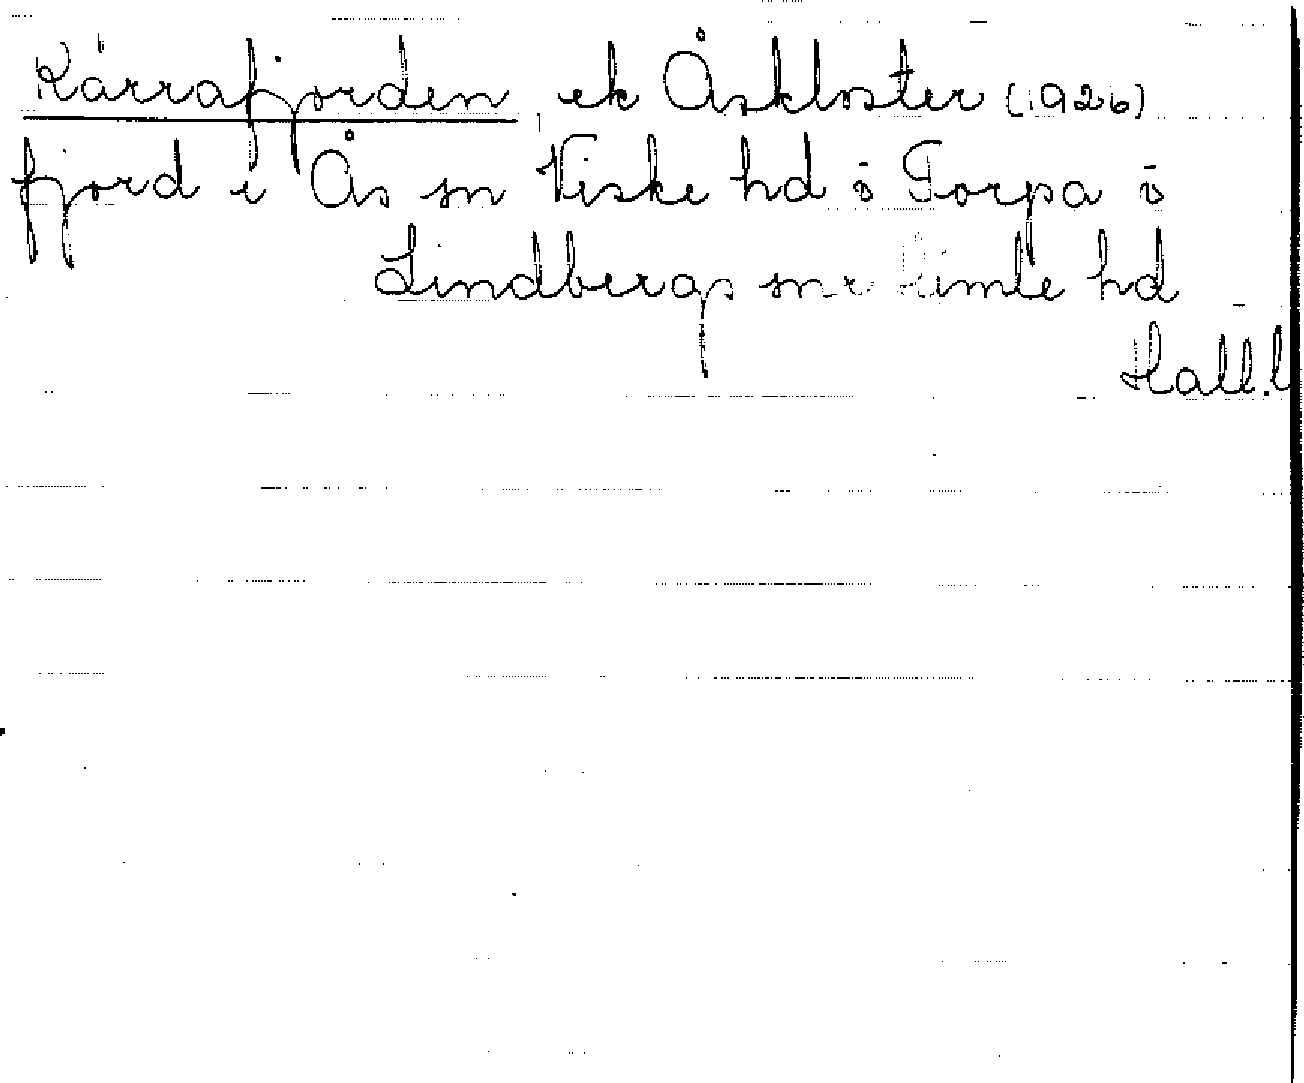 Kärrafjorden ek Åskloster (1926)
fjord i Ås sn Viske hd o Torpa o
Lindbergs snr Himle hd
Hall.l